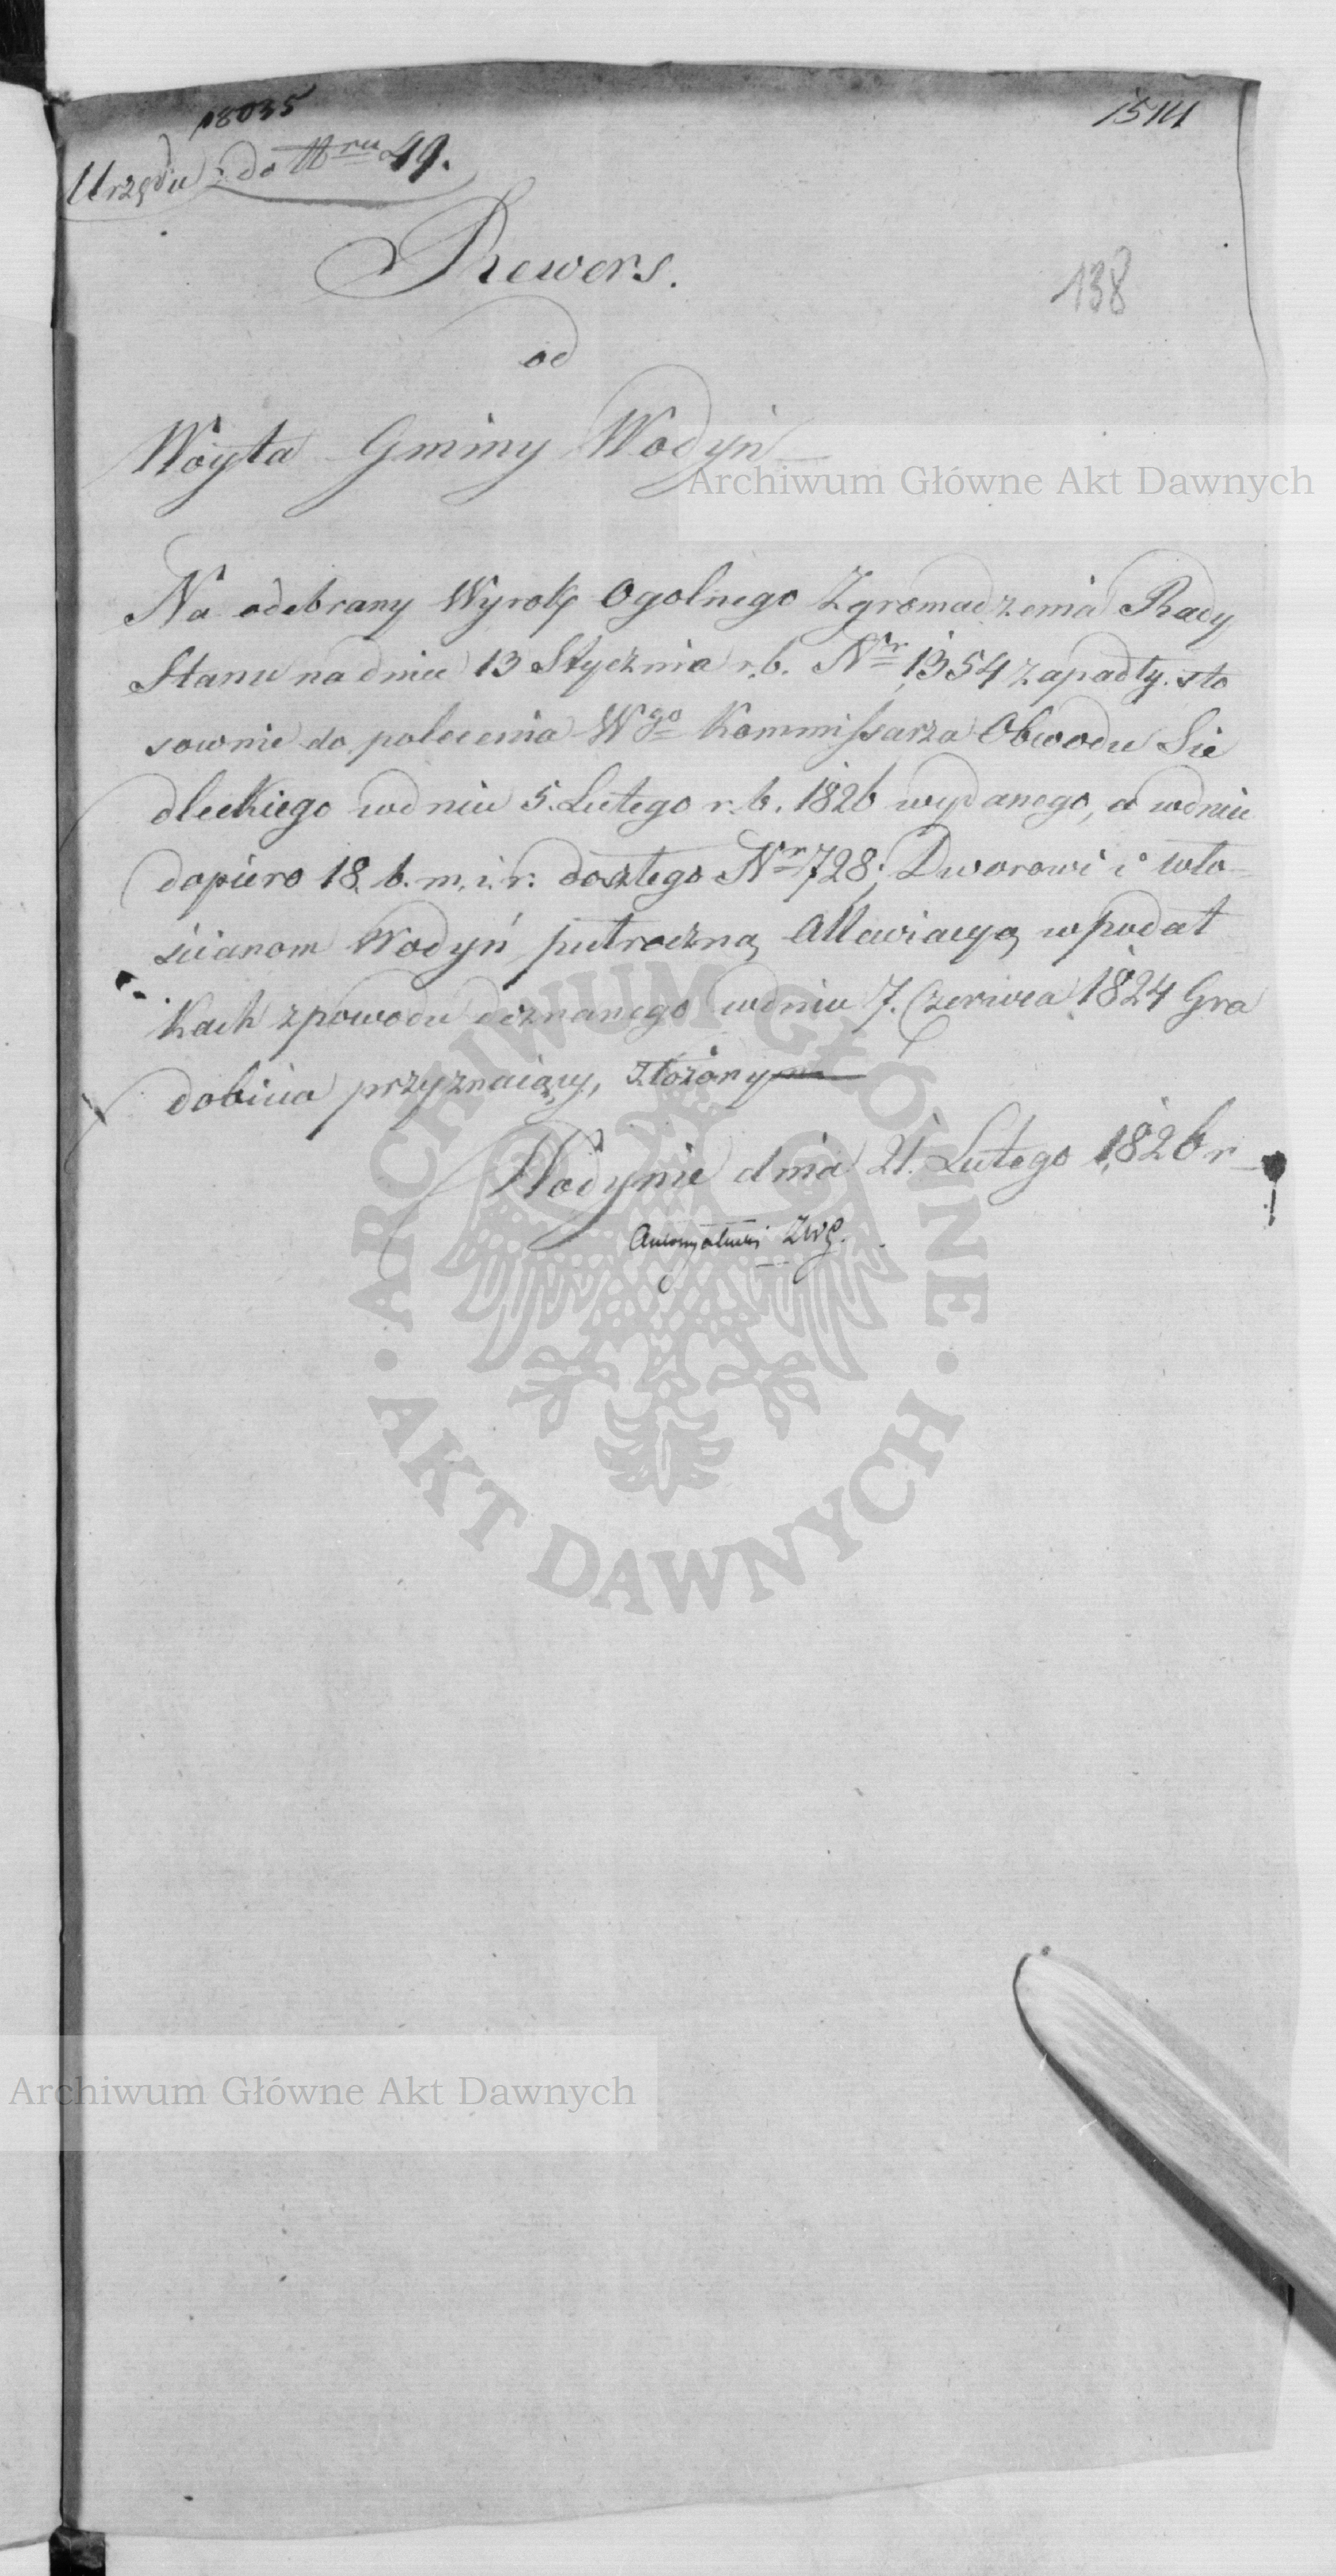 18035
Urzędu do Nru 49.
Rewers.
138
od
Wóyta Gminy Wodyń
Archiwum Główne Akt Dawnych
Na odebrany Wyrok Ogolnego Zgromadzenia Rady
Stanu na dniu 13 Stycznia r.b. Nr 1354 zapadły. sto
sownie do polecenia Wgo Kommissarza Obwodu Sie
dleckiego wdniu 5. Lutego r.b. 1826 wydanego, a wdniu
dopiero 18. b. m. i r: doszłego Nr 728; Dworowi i wło-
ścianom Wodyń putroczną Allewiacyą wpodat
kach zpowodu doznanego wdniu 7. Czerwca 1824 Gra
dobicia przyznaiący, złożony
Wodynie dnia 21. Lutego 1826 r
ZWG.
ARCHIWUM GŁÓWNE
AKT DAWNYCH
Archiwum Główne Akt Dawnych